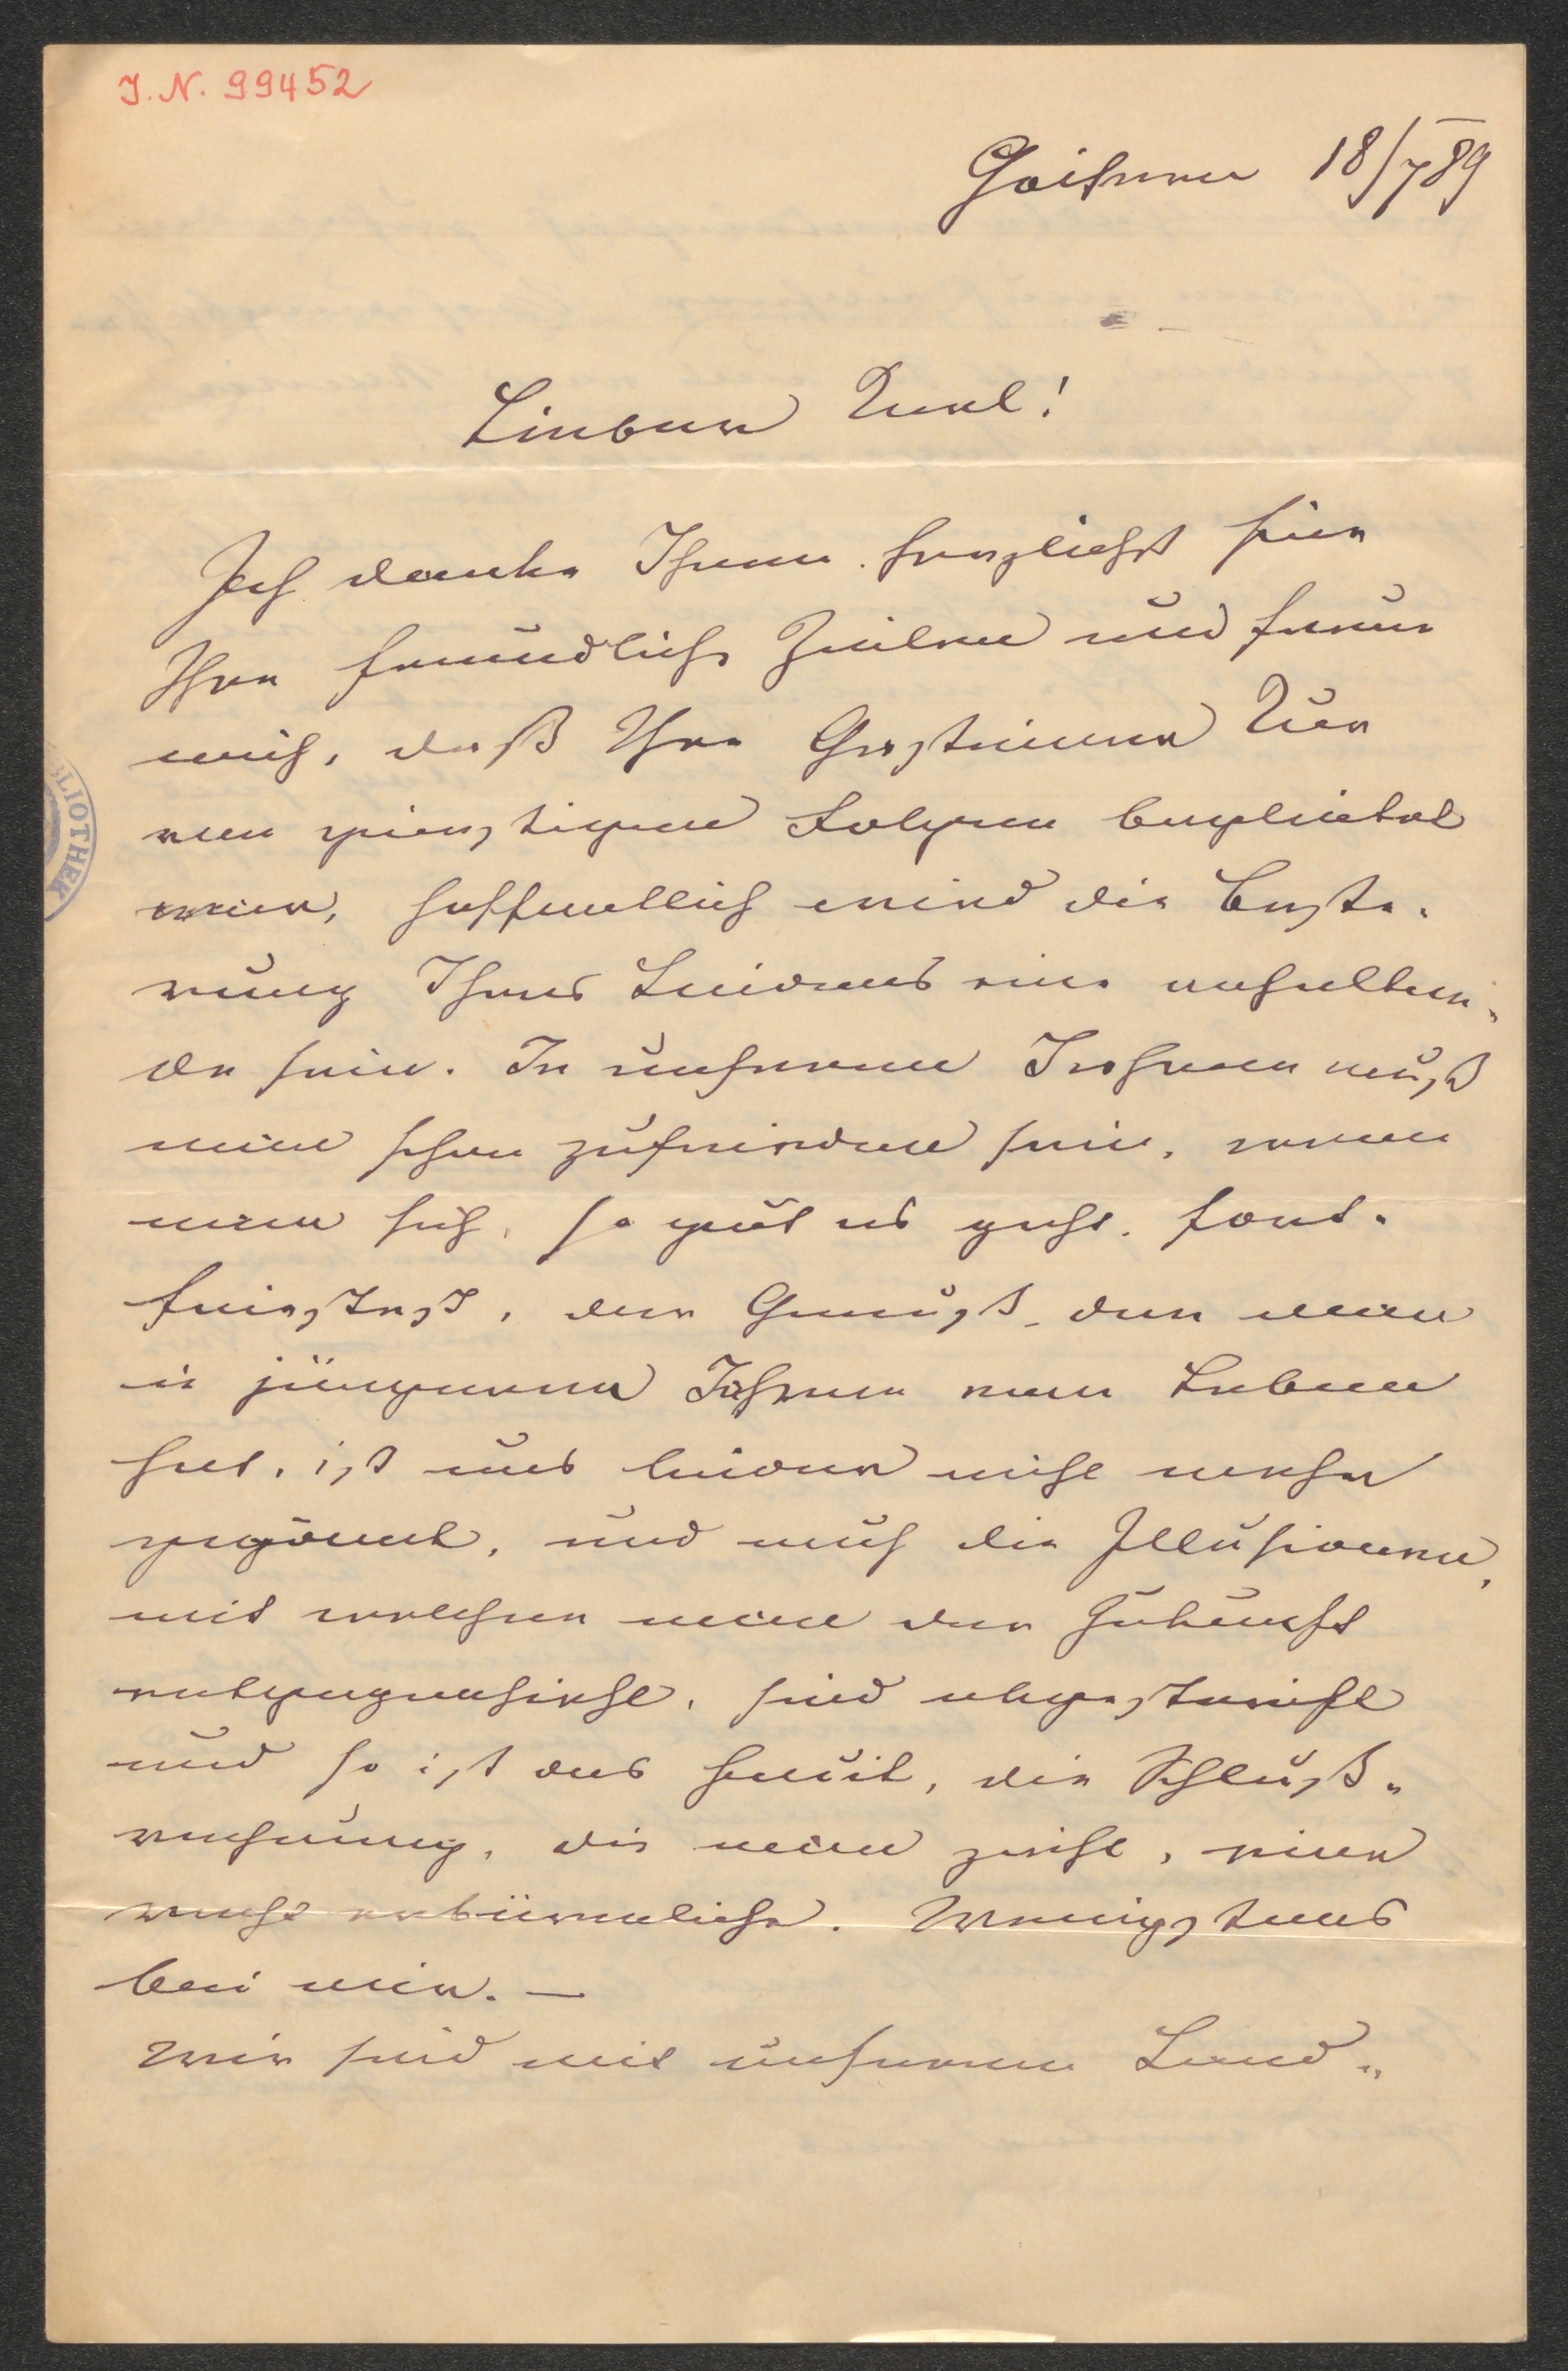 J. N. 99452
Goisern 18/7 89
Lieber Karl!
Ich danke Ihnen herzlichst für
Ihre freundliche Zeilen und freue
mich, daß Ihre Gasteiner Kur
von günstigen Folgen begleitet
war, hoffentlich wird die Besse-
rung Ihres Leidens eine anhalten-
de sein. In unseren Jahren muß
man schon zufrieden sein, wenn
man sich, so gut es geht, fort-
fristet, den Genuß, den man
in jüngeren Jahren vom Leben
hat, ist uns leider nicht mehr
gegönnt, und auch die Illusionen,
mit welchen man der Zukunft
entgegensieht, sind abgestreift
und so ist das Facit, die Schluß-
rechnung, die man zieht, eine
recht erbärmliche. Wenigstens
bei mir. —
Wir sind mit unserem Land-
BLIOTHEK